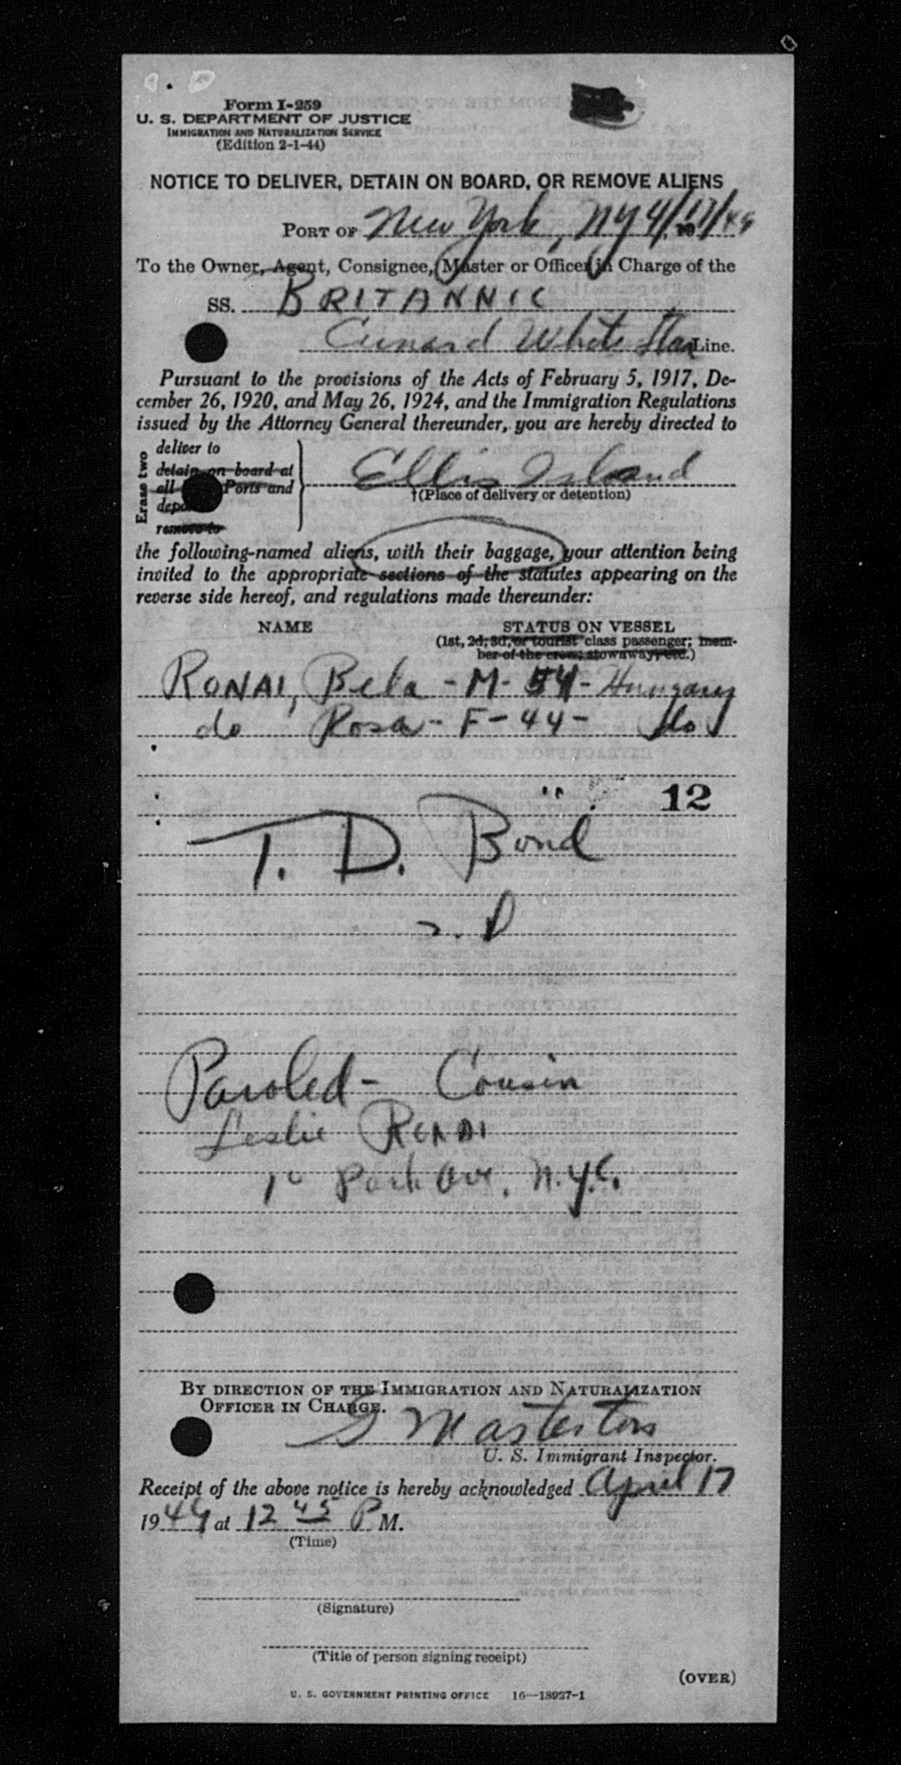 Form I-259
U. S. DEPARTMENT OF JUSTICE
IMMIGRATION AND NATURALIZATION SERVICE
(Edition 2-1-44)
NOTICE TO DELIVER, DETAIN ON BOARD, OR REMOVE ALIENS
PORT OF New York, NY 4/17/49
To the Owner, Agent, Consignee, Master or Officer in Charge of the
SS. BRITANNIC
Cunard White Star Line.
Pursuant to the provisions of the Acts of February 5, 1917, De-
cember 26, 1920, and May 26, 1924, and the Immigration Regulations
issued by the Attorney General thereunder, you are hereby directed to
Erase two
deliver to
detain on board at
all Ports and
remove to
Ellis Island
†(Place of delivery or detention)
the following-named aliens, with their baggage, your attention being
invited to the appropriate sections of the statutes appearing on the
reverse side hereof, and regulations made thereunder:
NAME STATUS ON VESSEL
(1st, 2d, 3d, or tourist class passenger; mem-
ber of the crew; stowaway, etc.)
RONAI, Bela - M - 54 - Hungary
do Rosa - F - 44 - do
12
T. D. Bond
Paroled - Cousin
Leslie RONAI
Park Ave. N.Y.C.
BY DIRECTION OF THE IMMIGRATION AND NATURALIZATION
OFFICER IN CHARGE.
G Masterton
U. S. Immigrant Inspector.
Receipt of the above notice is hereby acknowledged April 17
1949 at 12 45 P M.
(Time)
(Signature)
(Title of person signing receipt)
(OVER)
U. S. GOVERNMENT PRINTING OFFICE 16—18927-1